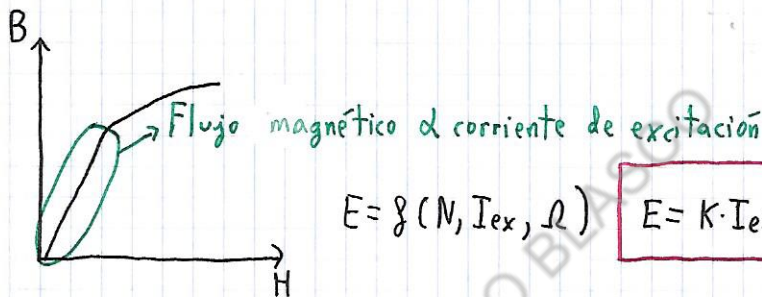 B
Flujo magnético α corriente de excitación
E = f(N, Iex, Ω) E = K·Ie
H
O BLASCO